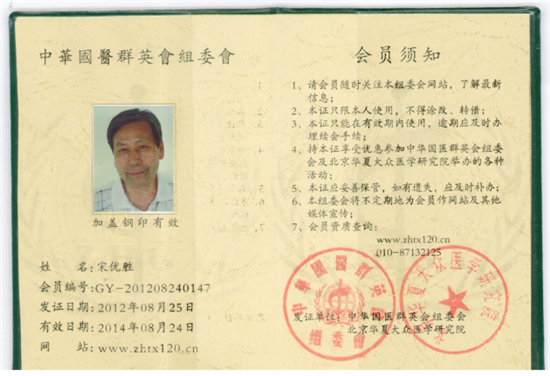 中華國醫群英會組委會
加盖钢印有效
姓    名:宋优胜
会员编号:GY-201208240147
发证日期:2012年08月25日
有效日期:2014年08月24日
网    站:www.zhtx120.cn
会员须知
1、请会员随时关注本组委会网站,了解最新
信息;
2、本证只限本人使用,不得涂改、转借;
3、本证只能在有效期内使用,逾期应及时办
理续会手续;
4、持本证享受优惠参加中华国医群英会组委
会及北京华夏大众医学研究院举办的各种
活动;
5、本证应妥善保管,如有遗失,应及时补办;
6、本组委会将不定期地为会员作网站及其他
媒体宣传;
7、会员资质查询:
www.zhtx120.cn
010-87132125
发证单位:中华国医群英会组委会
北京华夏大众医学研究院
中華國醫群英會
組委會
华夏大众医学研究院